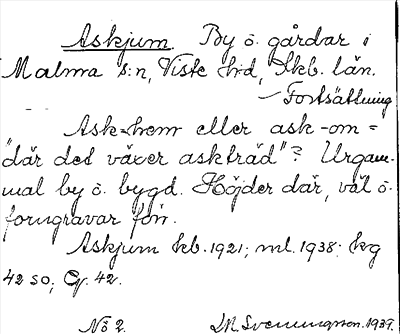 Askjum. By o. gårdar i
Malma s:n, Viste h:d, Skb. län.
– Fortsättning
Ask-hem eller ask-om =
"där det växer askträd"? Urgam-
mal by o. bygd. Höjder där, väl o.
forngravar förr.
Askjum kb. 1921; ml. 1938; kg
42 so; Gs. 42.
No 2. D.A. Svenningson. 1939.